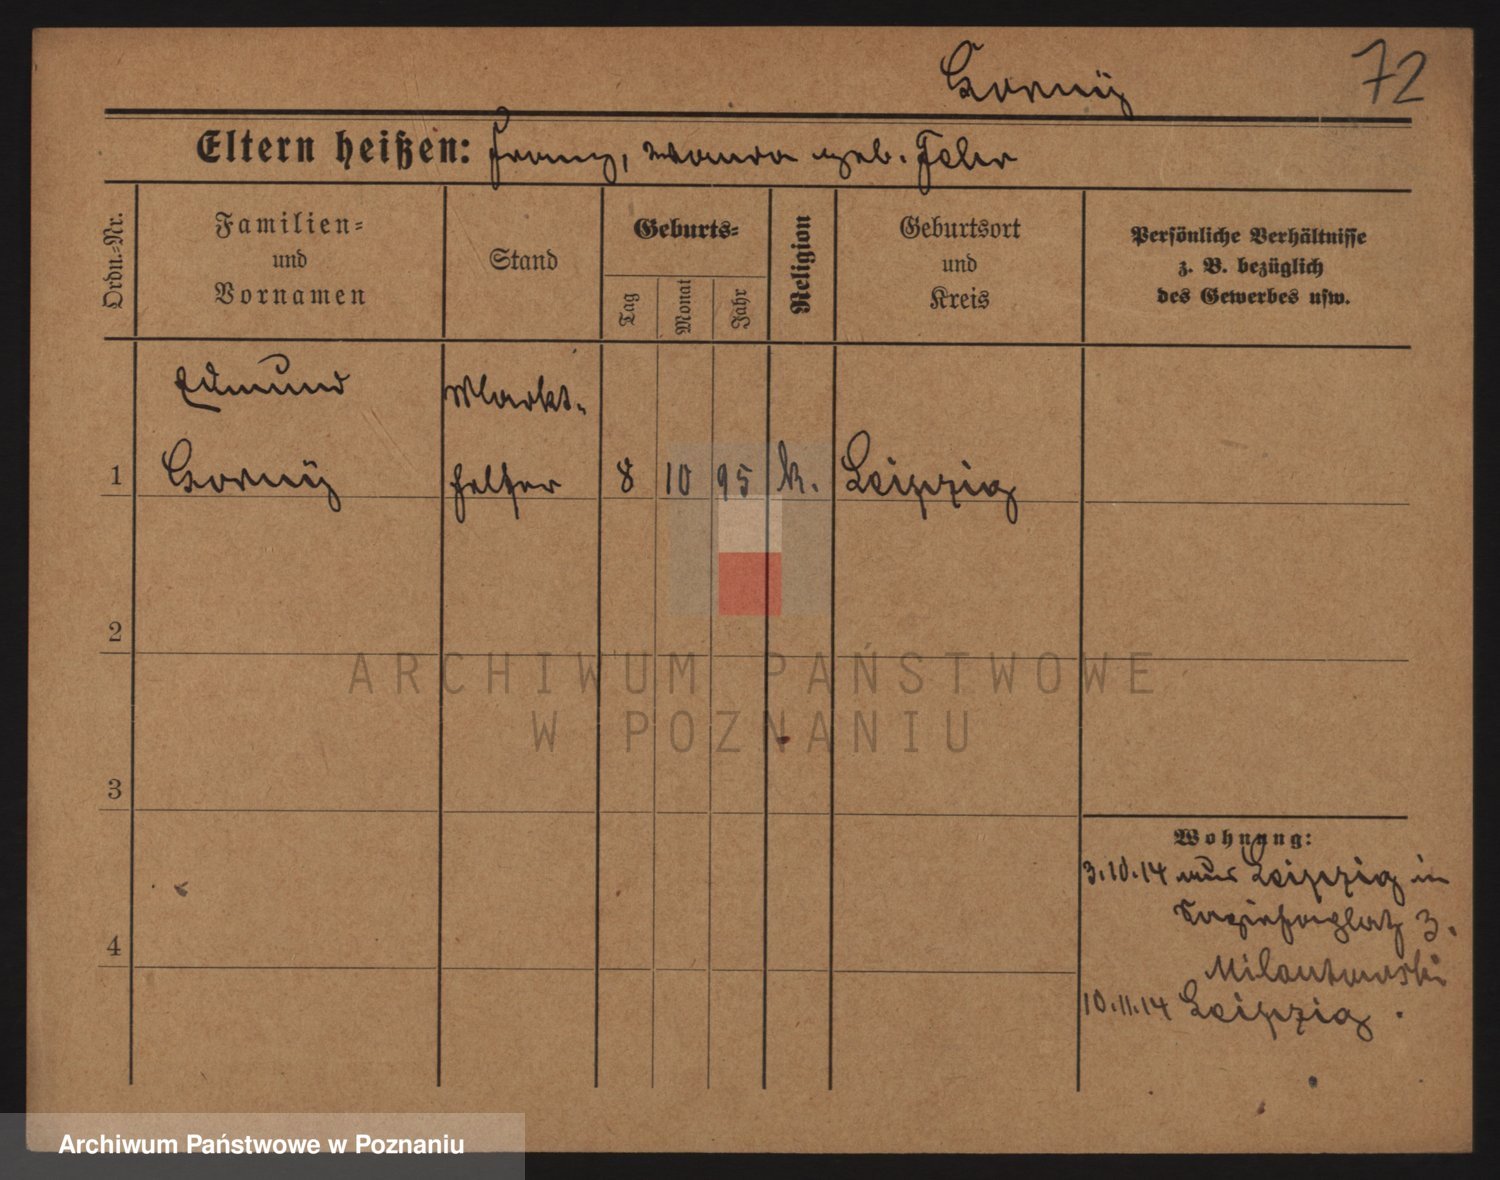 72
Eltern heißen: Franz, Wanda geb. Fehr
Ordn.-Nr.
Familien-
und
Vornamen
Stand
Geburts-
Tag
Monat
Jahr
Religion
Geburtsort
und
Kreis
Persönliche Verhältnisse
z. B. bezüglich
des Gewerbes usw.
Edmund
Markt-
1
helfer
8 10 95
k.
Leipzig
2
3
4
Wohnung:
3.10.14 aus Leipzig in
3.
10.11.14 Leipzig.
ARCHIWUM PAŃSTWOWE
W POZNANIU
Archiwum Państwowe w Poznaniu